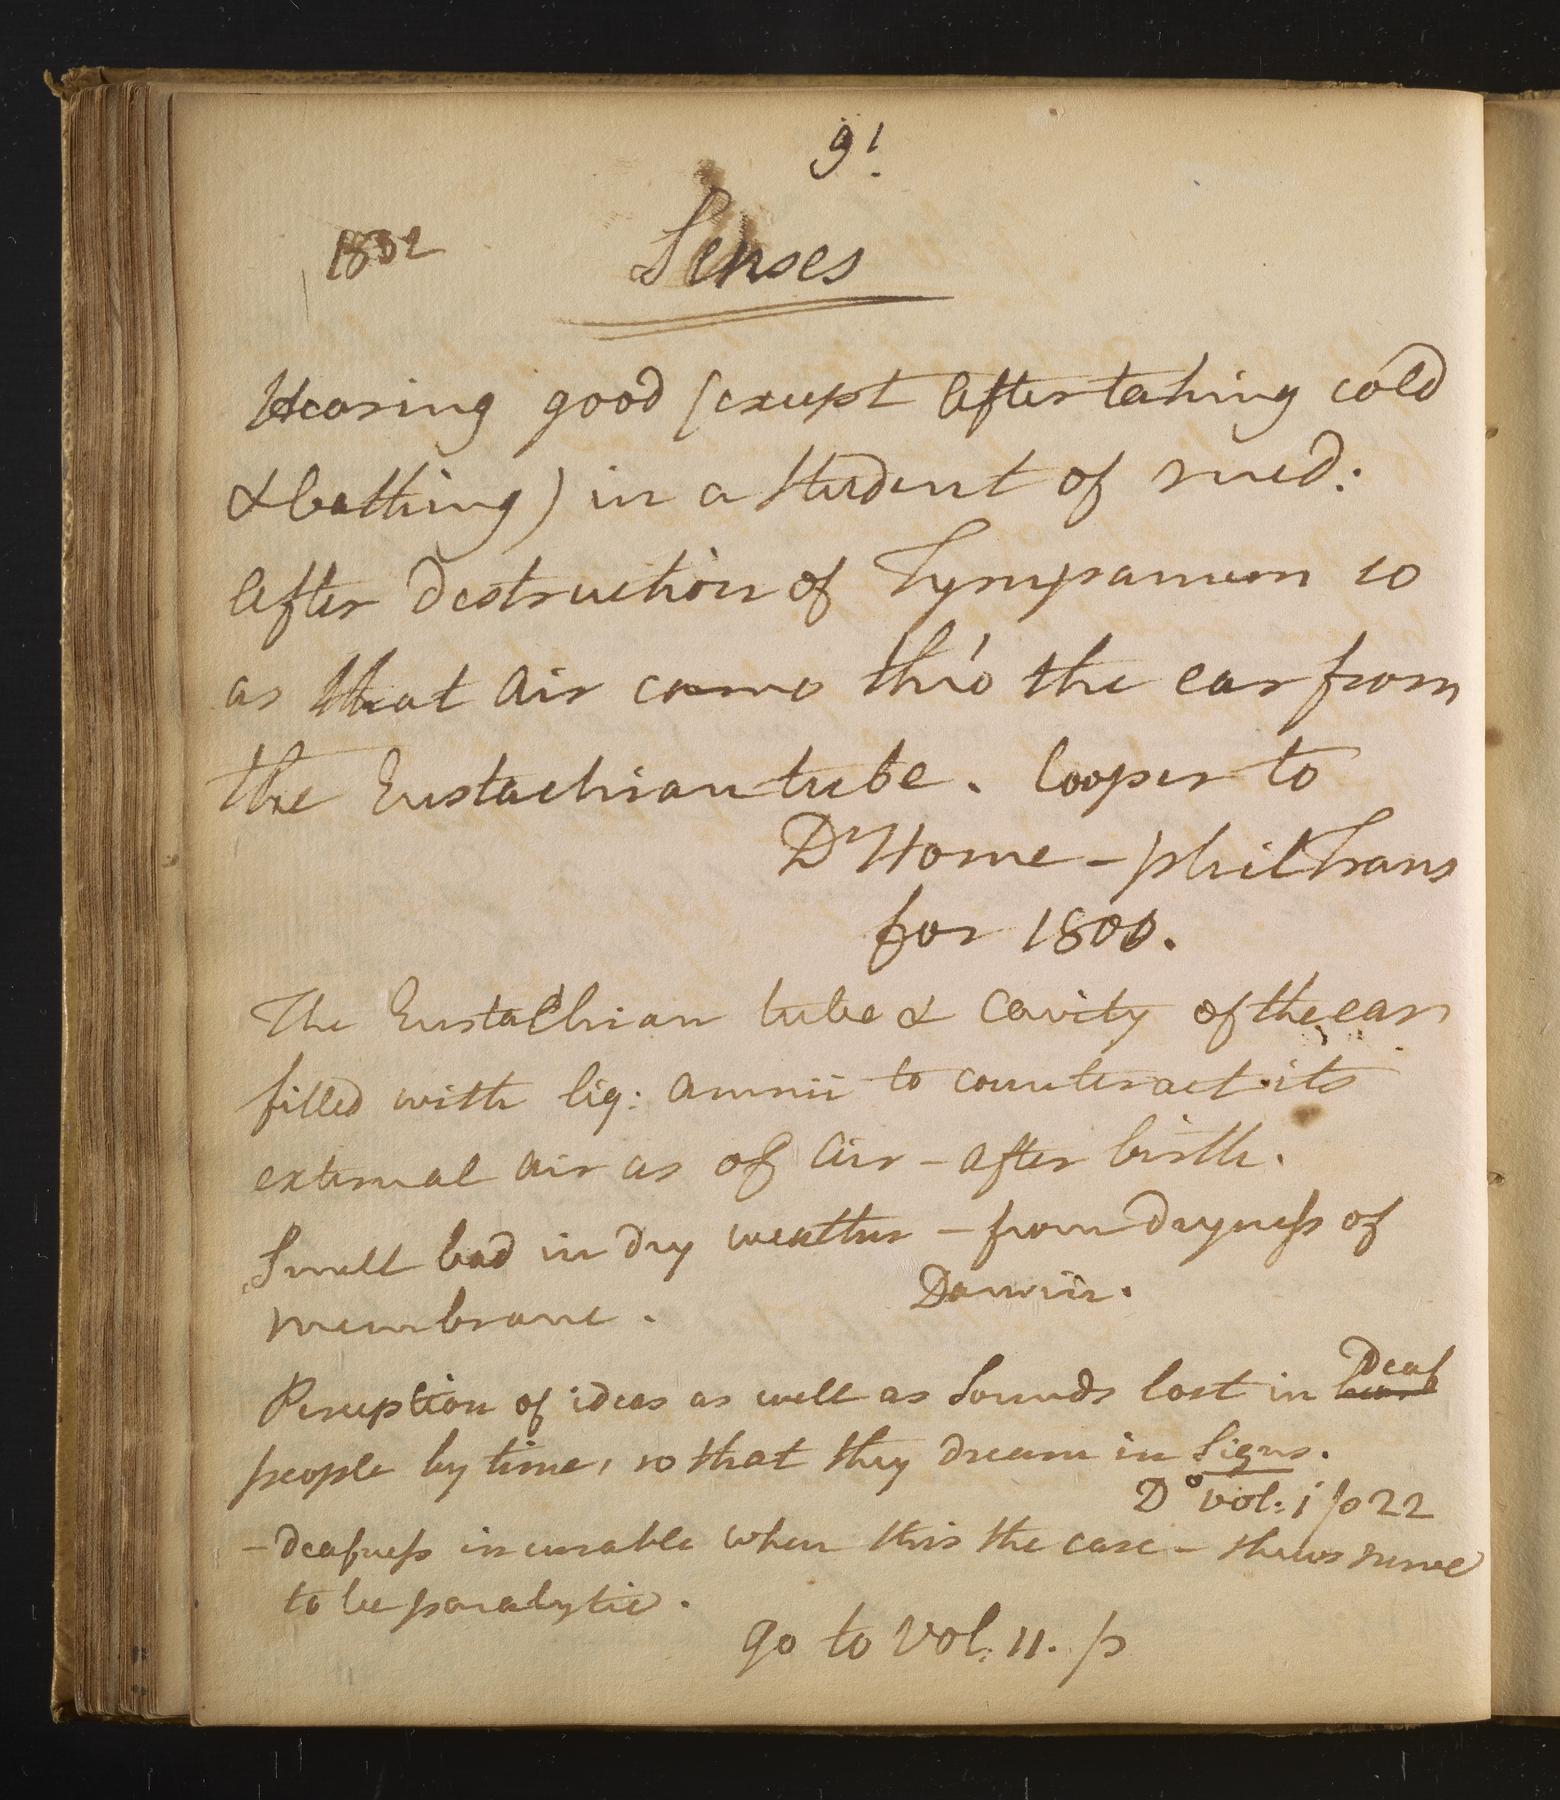 91.
1802
Senses
Hearing good (except after taking cold
& bathing) in a student of med:
after destruction of Tympanum so
as that air comes thro' the ear from
the Eustachian tube. Cooper to
Dr Home - phil Trans
for 1800.
The Eustachian tube & cavity of the ear
filled with liq: amnii to counteract its
external air as of air - after birth.
Smell bad in dry weather - from dryness of
membrane. Darwin.
Perception of ideas as well as sounds lost in Deaf
people by time, so that they dream in signs.
Do vol: 1 p 22
- deafness incurable when this the case - shews nerve
to be paralytic.
go to vol: 11. p